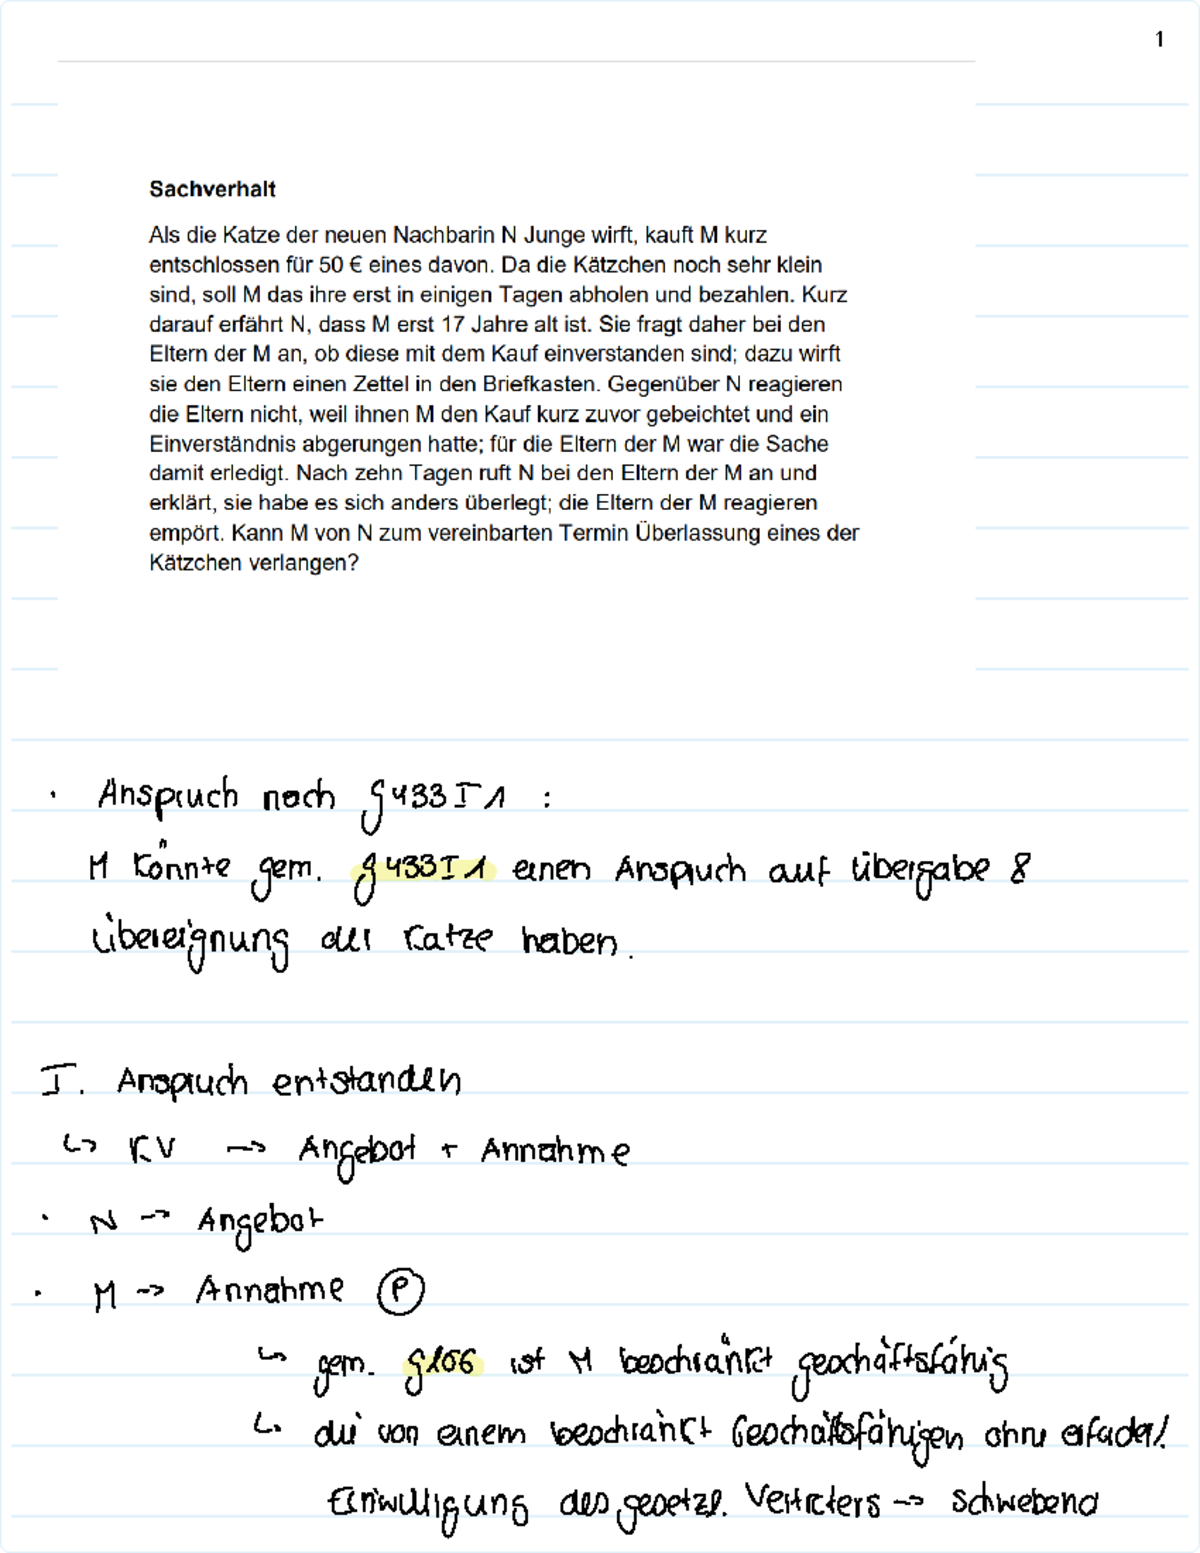 1
Sachverhalt
Als die Katze der neuen Nachbarin N Junge wirft, kauft M kurz
entschlossen für 50 € eines davon. Da die Kätzchen noch sehr klein
sind, soll M das ihre erst in einigen Tagen abholen und bezahlen. Kurz
darauf erfährt N, dass M erst 17 Jahre alt ist. Sie fragt daher bei den
Eltern der M an, ob diese mit dem Kauf einverstanden sind; dazu wirft
sie den Eltern einen Zettel in den Briefkasten. Gegenüber N reagieren
die Eltern nicht, weil ihnen M den Kauf kurz zuvor gebeichtet und ein
Einverständnis abgerungen hatte; für die Eltern der M war die Sache
damit erledigt. Nach zehn Tagen ruft N bei den Eltern der M an und
erklärt, sie habe es sich anders überlegt; die Eltern der M reagieren
empört. Kann M von N zum vereinbarten Termin Überlassung eines der
Kätzchen verlangen?
· Anspruch nach § 433 I 1 :
M könnte gem. § 433 I 1 einen Anspruch auf Übergabe &
Übereignung der Katze haben.
I. Anspruch entstanden
↳ KV → Angebot + Annahme
· N → Angebot
· M → Annahme (P)
↳ gem. § 106 ist M beschränkt geschäftsfähig
↳ die von einem beschränkt Geschäftsfähigen ohne erforderl.
Einwilligung des gesetzl. Vertreters → schwebend